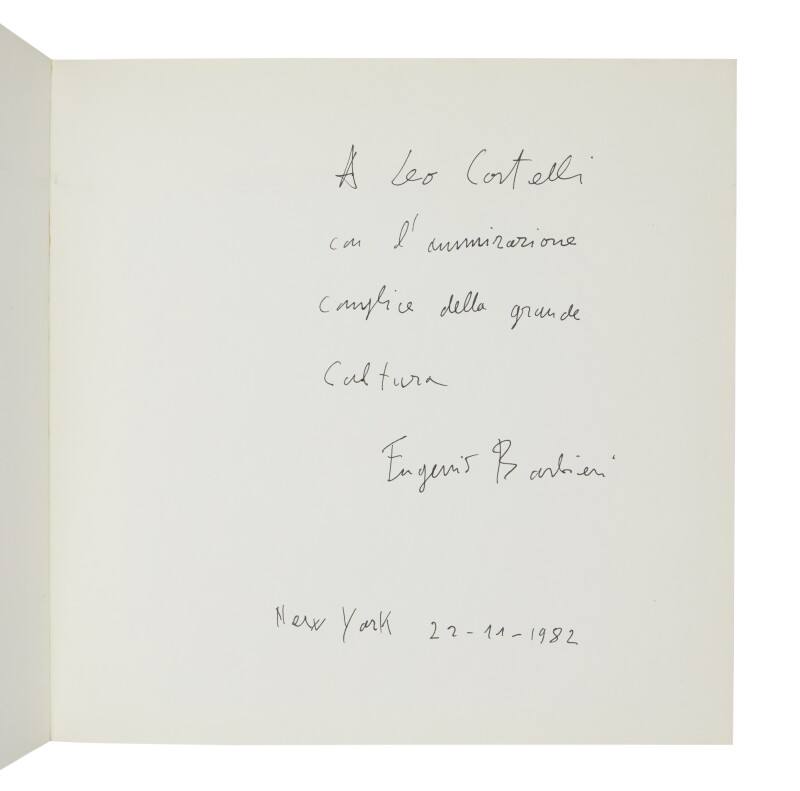 A Leo Castelli
con l'ammirazione
complice della grande
Cultura
Eugenio Barbieri
New York 22-11-1982